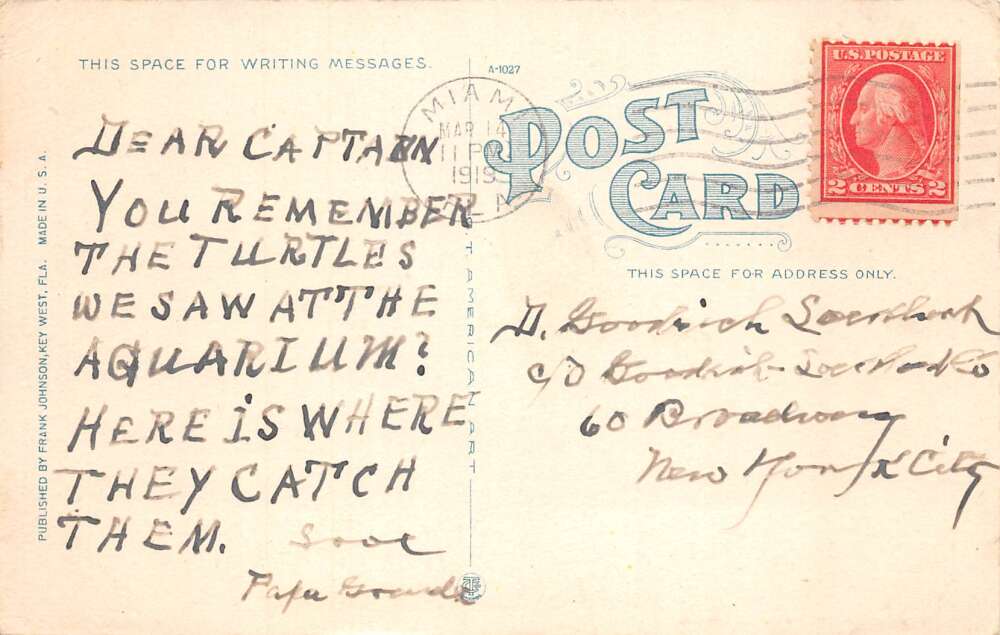 THIS SPACE FOR WRITING MESSAGES.
A-1027
POST
CARD
THIS SPACE FOR ADDRESS ONLY.
MIAMI
MAR 14
11 PM
1919
U.S. POSTAGE
2 CENTS 2
PUBLISHED BY FRANK JOHNSON, KEY WEST, FLA. MADE IN U.S.A.
DEAR CAPTAIN
YOU REMEMBER
THE TURTLES
WE SAW AT THE
AQUARIUM?
HERE IS WHERE
THEY CATCH
THEM.
Papa
T AMERICAN ART
D. Goodrich
c/o Goodrich
60 Broadway
New York City